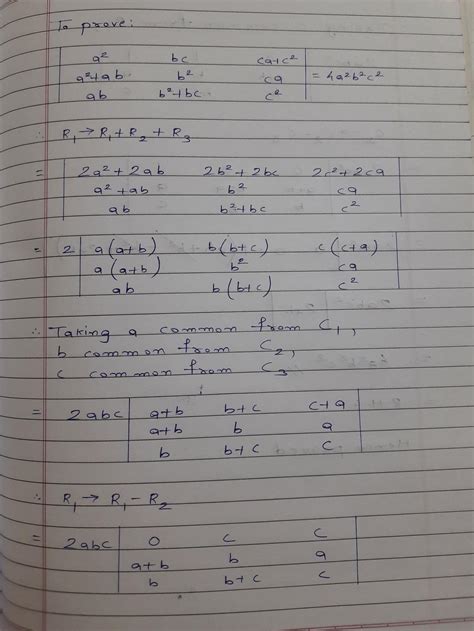 To prove:
a² bc ca+c²
a²+ab b² ca = 4a²b²c²
ab b²+bc c²
∴ R₁ → R₁ + R₂ + R₃
= 2a²+2ab 2b²+2bc 2c²+2ca
a²+ab b² ca
ab b²+bc c²
= 2 a(a+b) b(b+c) c(c+a)
a(a+b) b² ca
ab b(b+c) c²
∴ Taking a common from C₁,
b common from C₂,
c common from C₃
= 2abc a+b b+c c+a
a+b b a
b b+c c
∴ R₁ → R₁ - R₂
= 2abc 0 c c
a+b b a
b b+c c